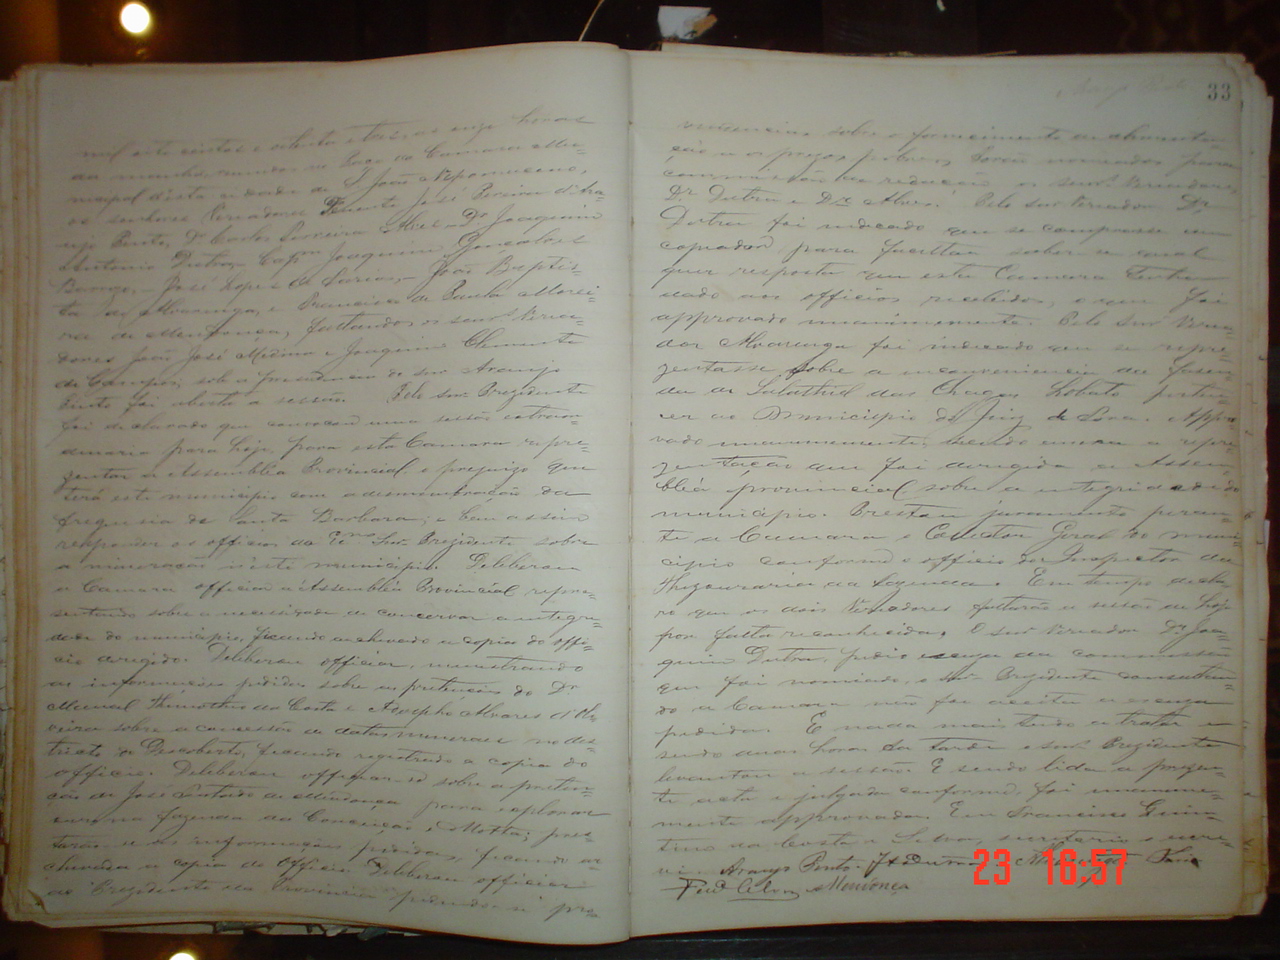 mil oito centos e oitenta e tres, as onze horas
da manhã, reunidos no Paço da Camara Mu-
nicipal desta cidade de S. João Nepomuceno,
os senhores Vereadores Tenente José Pereira d'Ara-
ujo Pinto, Dr. Carlos Ferreira Alves, Dr. Joaquim
Antonio Dutra, Capm. Joaquim Gonçalves
José Lopes de Faria, João Baptis-
ta de Alvarenga, e Francisco de Paula Morei-
ra de Mendonça, faltando os senrs. Verea-
dores João José Medina e Joaquim Clemente
de Campos, sob a presidencia do snr. Araujo
Pinto foi aberta a sessão. Pelo snr. Prezidente
foi declarado que convocou uma sessão extraor-
dinaria para hoje, para esta Camara repre-
zentar a Assembléa Provincial o prejuizo que
terá este municipio com a desmembração da
freguesia de Santa Barbara; e bem assim
responder os officios do Exmo. Snr. Prezidente sobre
a mineração n'este municipio. Deliberou
a Camara officiar a Assembléa Provincial repre-
sentando sobre a necessidade de conservar a integri-
dade do municipio, ficando archivado a copia do offi-
cio dirigido. Deliberou officiar, ministrando
as informações pedidas sobre as pretenções do Dr.
Manoel Thimotheo da Costa e Adolpho Alvares d'Oli-
veira sobre a concessão de datas mineraes no des-
tricto do Descoberto, ficando registrado a copia do
officio. Deliberou officiar-se sobre a preten-
ção de José Furtado de Mendonça para explorar
ouro na fazenda da Conceição e Motta; pres-
tarão-se as informações pedidas, ficando ar-
chivada a copia do officio. Deliberou officiar
ao Prezidente da Provincia pedindo-se pro-
33
videncias sobre o fornecimento de alimenta-
ção a os prezos pobres, forão nomeados para
commissão de redacção os senrs. Vereadores
Dr. Dutra e Dr. Alves. Pelo snr. Vereador Dr.
Dutra foi indicado que se comprasse um
copiador para facilitar sobre a qual
quer resposta que esta Camara tenha
dado aos officios recebidos, o que foi
approvado unanimemente. Pelo snr. Verea-
dor Alvarenga foi indicado que se repre-
zentasse sobre a inconveniencia da fazen-
da de Salathiel das Chagas Lobato perten-
cer ao Municipio do Juiz de Fora. Appro-
vado unanimemente, a repre-
zentação que foi dirigida a Assem-
bléa provincial sobre a integridade do
municipio. Prestou juramento peran-
te a Camara o Collector Geral do muni-
cipio conforme o officio do Inspector da
Thezouraria da fazenda. Em tempo decla-
ro que os dois Vereadores faltarão a sessão de hoje
por falta reconhecida. O snr. Vereador Dr. Joa-
quim Dutra, pedio escuza da commissão
que foi nomiado, o Snr. Prezidente consultan-
do a Camara não foi aceita a escuza
pedida. E nada mais tendo a tratar e
sendo duas horas da tarde o snr. Prezidente
levantou a sessão. E sendo lida a prezen-
te acta e julgada conforme, foi unanime-
mente approvada. Eu Francisco
da Costa e Silva, secretario o escre-
vi. Araujo Pinto. Dutra Faria
Mendonça
23 16:57